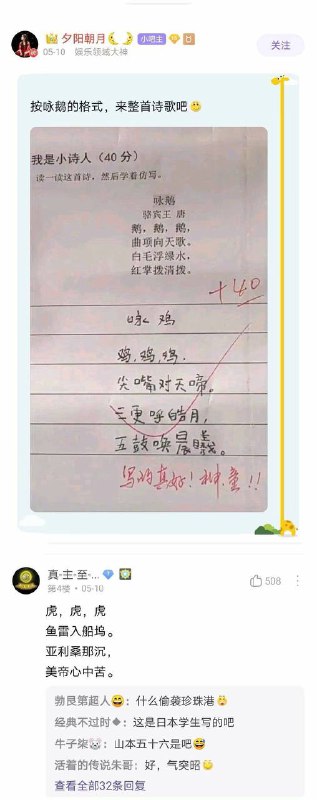 夕阳朝月
小吧主
05-10 娱乐领域大神
关注
按咏鹅的格式，来整首诗歌吧
我是小诗人（40 分）
读一读这首诗，然后学着仿写。
咏鹅
骆宾王 唐
鹅，鹅，鹅，
曲项向天歌。
白毛浮绿水，
红掌拨清拨。
+40
咏鸡
鸡，鸡，鸡，
尖嘴对天啼。
三更呼皓月，
五鼓唤晨曦。
写的真好！神童！！
真-主-至-...
第4楼 · 05-10
508
虎，虎，虎
鱼雷入船坞。
亚利桑那沉，
美帝心中苦。
勃艮第超人：什么偷袭珍珠港
经典不过时：这是日本学生写的吧
牛子柒：山本五十六是吧
活着的传说朱哥：好，气突昭
查看全部32条回复